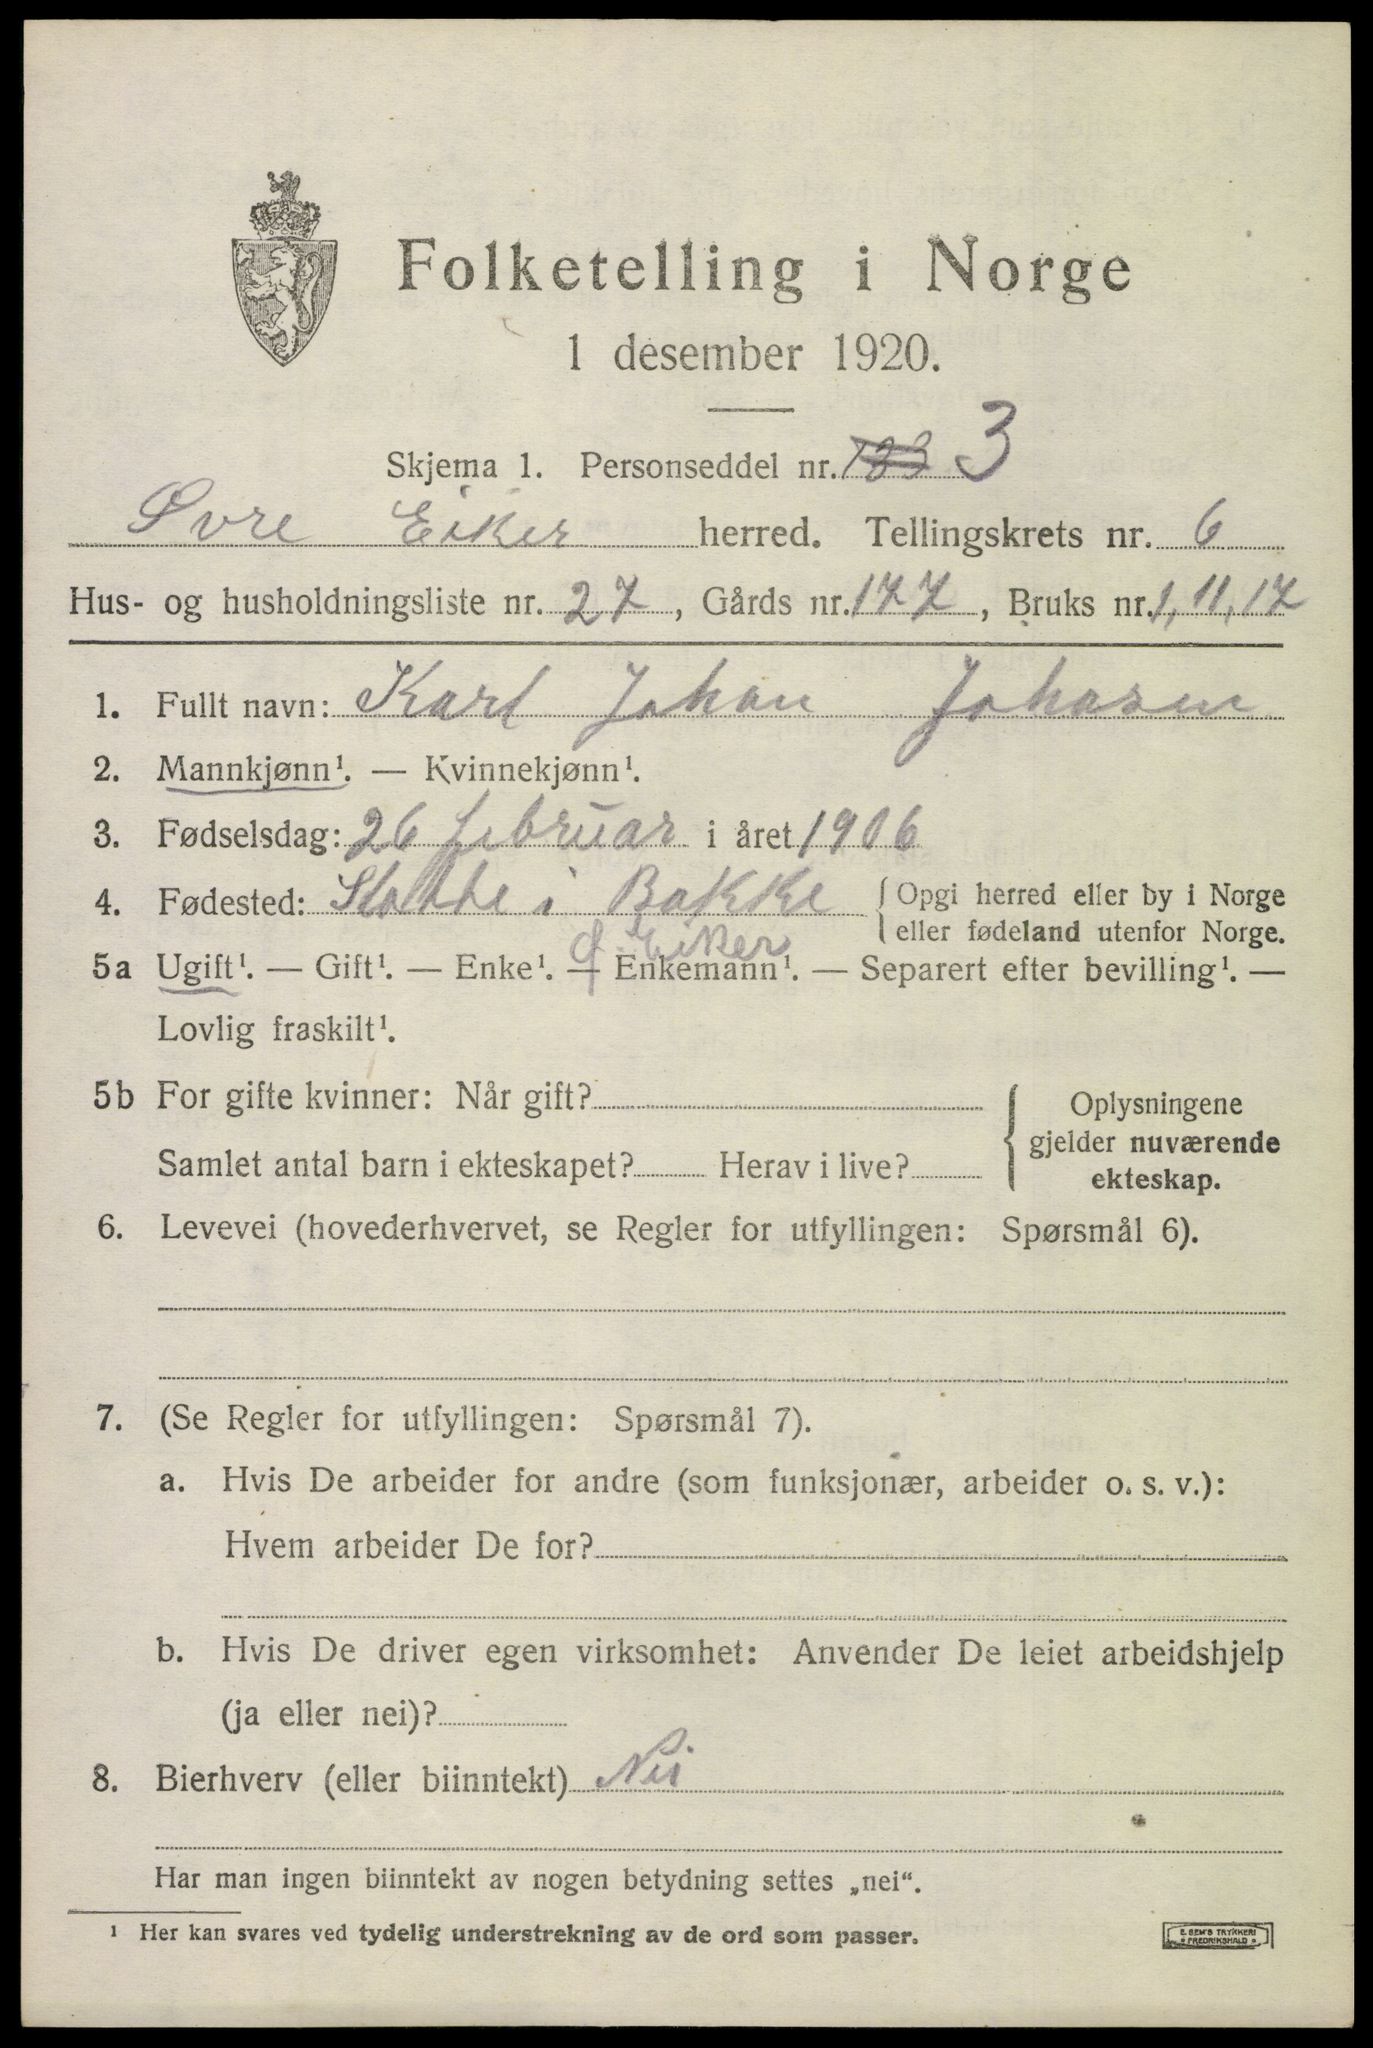 Folketelling i Norge
1 desember 1920.
Skjema 1. Personseddel nr. 3
Øvre Eiker herred. Tellingskrets nr. 6
Hus- og husholdningsliste nr. 27, Gårds nr. 177, Bruks nr. 1, 11, 17
1. Fullt navn: Karl Johan Johasen
2. Mannkjønn¹. — Kvinnekjønn¹.
3. Fødselsdag: 26 februar i året 1906
4. Fødested: i Bakke { Opgi herred eller by i Norge
eller fødeland utenfor Norge.
Eiker
5a Ugift¹. — Gift¹. — Enke¹. — Enkemann¹. — Separert efter bevilling¹. —
Lovlig fraskilt¹.
5b For gifte kvinner: Når gift? { Oplysningene
gjelder nuværende
Samlet antal barn i ekteskapet? Herav i live?
ekteskap.
6. Levevei (hovederhvervet, se Regler for utfyllingen: Spørsmål 6).
7. (Se Regler for utfyllingen: Spørsmål 7).
a. Hvis De arbeider for andre (som funksjonær, arbeider o. s. v.):
Hvem arbeider De for?
b. Hvis De driver egen virksomhet: Anvender De leiet arbeidshjelp
(ja eller nei)?
8. Bierhverv (eller biinntekt) Nei
Har man ingen biinntekt av nogen betydning settes „nei“.
¹ Her kan svares ved tydelig understrekning av de ord som passer.
E. SEM'S TRYKKERI
FREDRIKSHALD